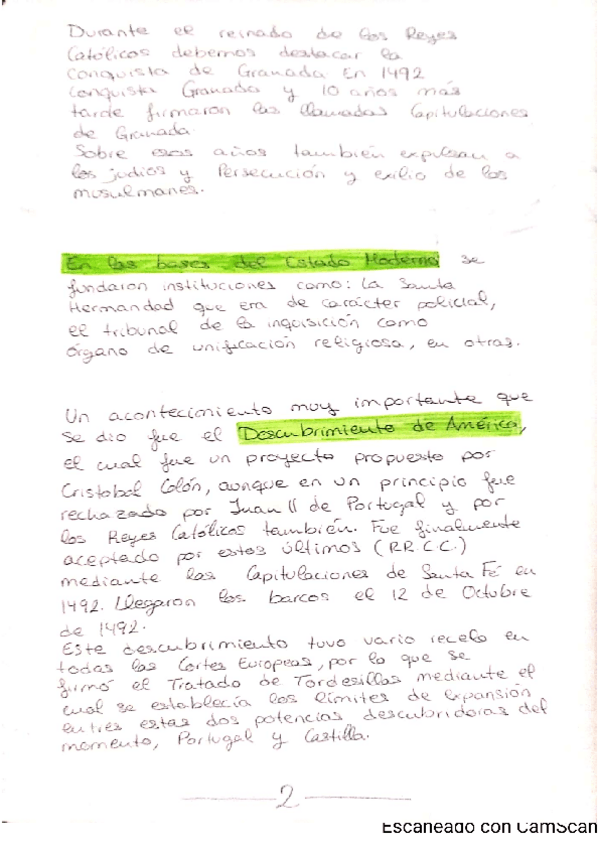 Durante el reinado de los Reyes
Católicos debemos destacar la
conquista de Granada En 1492
conquista Granada y 10 años más
tarde firmaron las llamadas Capitulaciones
de Granada.
Sobre esos años también expulsan a
los judíos y Persecución y exilio de los
musulmanes.
En las bases del Estado Moderno se
fundaron instituciones como: la Santa
Hermandad que era de carácter policial,
el tribunal de la inquisición como
órgano de unificación religiosa, en otras.
Un acontecimiento muy importante que
se dio fue el Descubrimiento de América,
el cual fue un proyecto propuesto por
Cristobal Colón, aunque en un principio fue
rechazado por Juan II de Portugal y por
los Reyes Católicos también. Fue finalmente
aceptado por estos últimos (RR.C.C.)
mediante las Capitulaciones de Santa Fé en
1492. Llegaron los barcos el 12 de Octubre
de 1492.
Este descubrimiento tuvo vario recelo en
todas las Cortes Europeas, por lo que se
firmó el Tratado de Tordesillas mediante el
cual se establecía los límites de expansión
entres estas dos potencias descubridoras del
momento, Portugal y Castilla.
2
Escaneado con CamScan